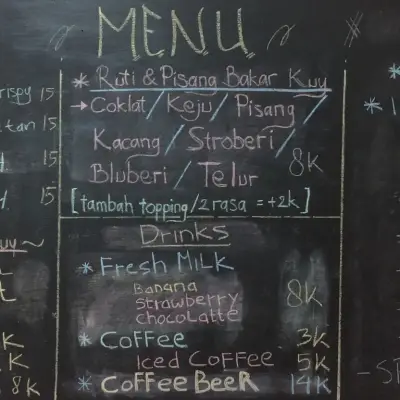 MENU
* Roti & Pisang Bakar Kuy
→ Coklat / Keju / Pisang /
Kacang / Stroberi /
Bluberi / Telur 8K
[tambah topping/2 rasa = +2K]
Drinks
* Fresh MiLK
Banana
Strawberry 8K
Chocolatte
* Coffee 3K
Iced Coffee 5K
* Coffee BeeR 14K
rispy 15
tan 15
15
15
K
K
8K